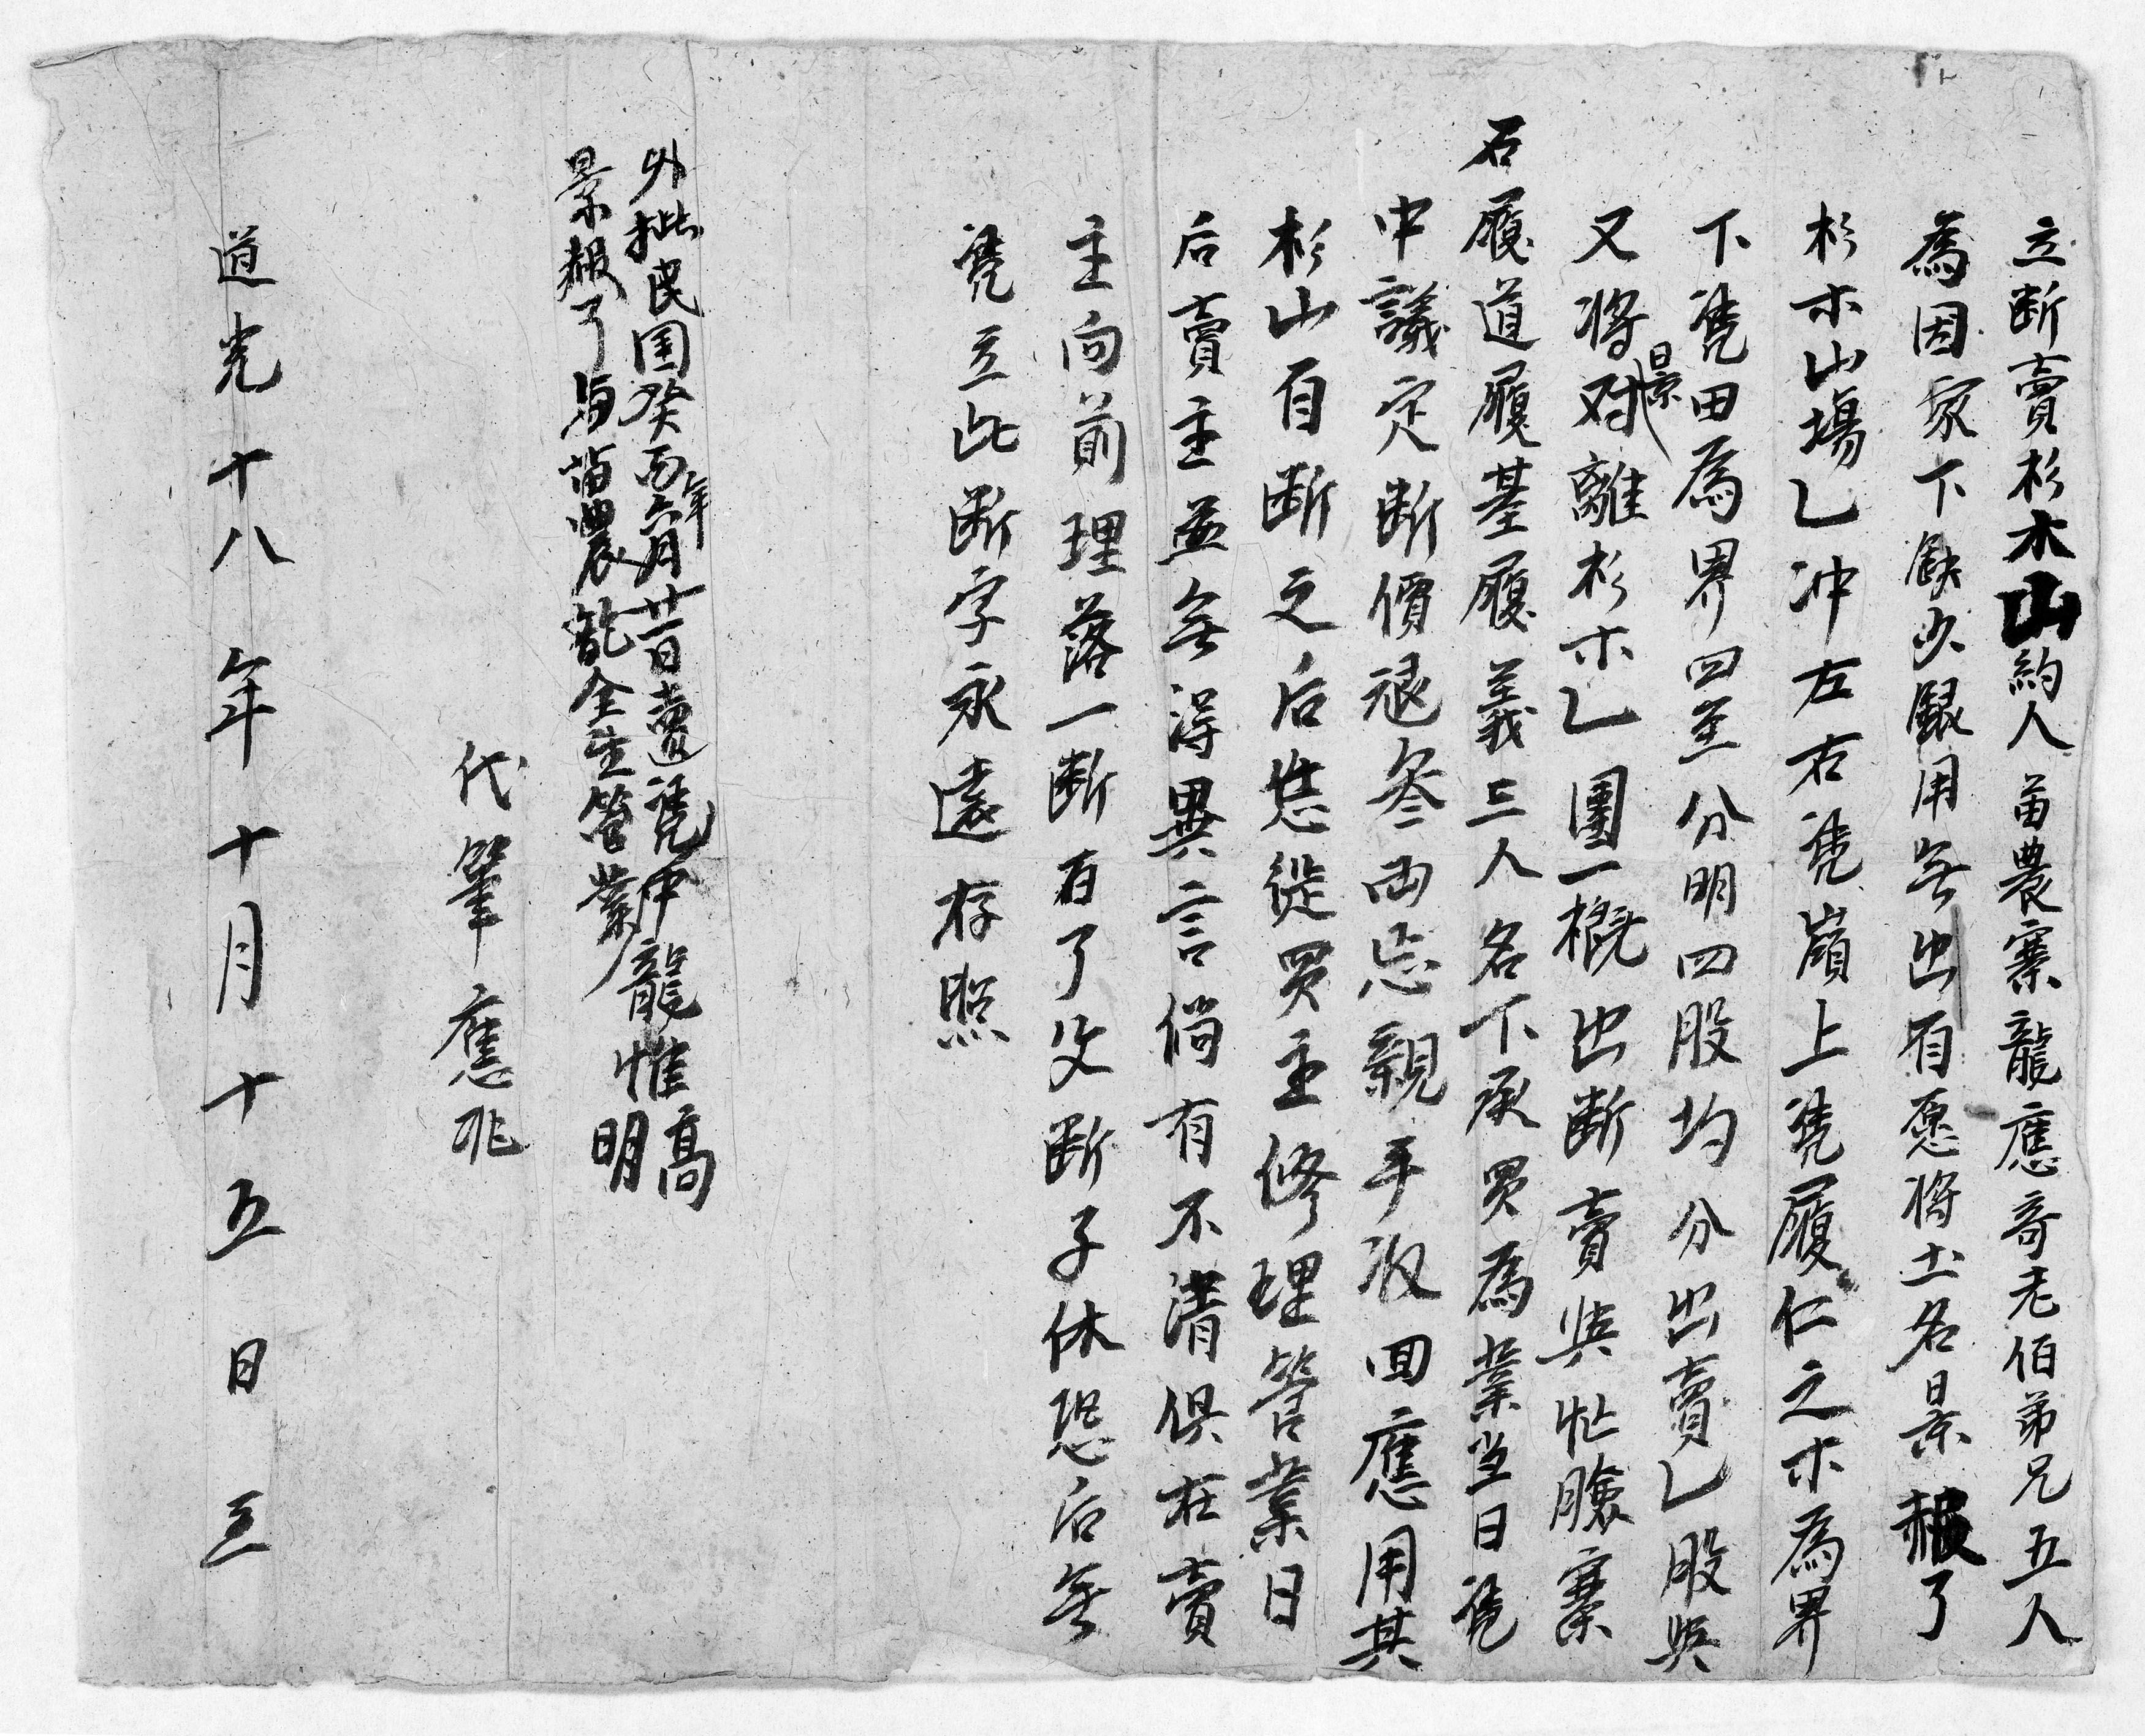 立断賣杉木山約人苗農寨龍應奇老伯弟兄五人
為因家下缺少銀用無出自愿将土名景報了
杉木山塲乚冲左右凴嶺上凴履仁之木為界
下凴田為界四至分明四股均分出賣乚股與
又将景对離杉木乚團一概出断賣與忙臉寨
石履道履基履義三人名下承買為業当日凴
中議定断價艮叁両忘親手收回應用其
杉山自断之后恁從買主修理管業日
后賣主並無得異言倘有不清俱在賣
主向前理落一断百了父断子休恐后無
凴立此断字永遠存照
外批民国癸酉年六月廿一日賣凴中龍惟高明
景報了与苗農龍全生管業
代筆應兆
道光十八年十月十五日立